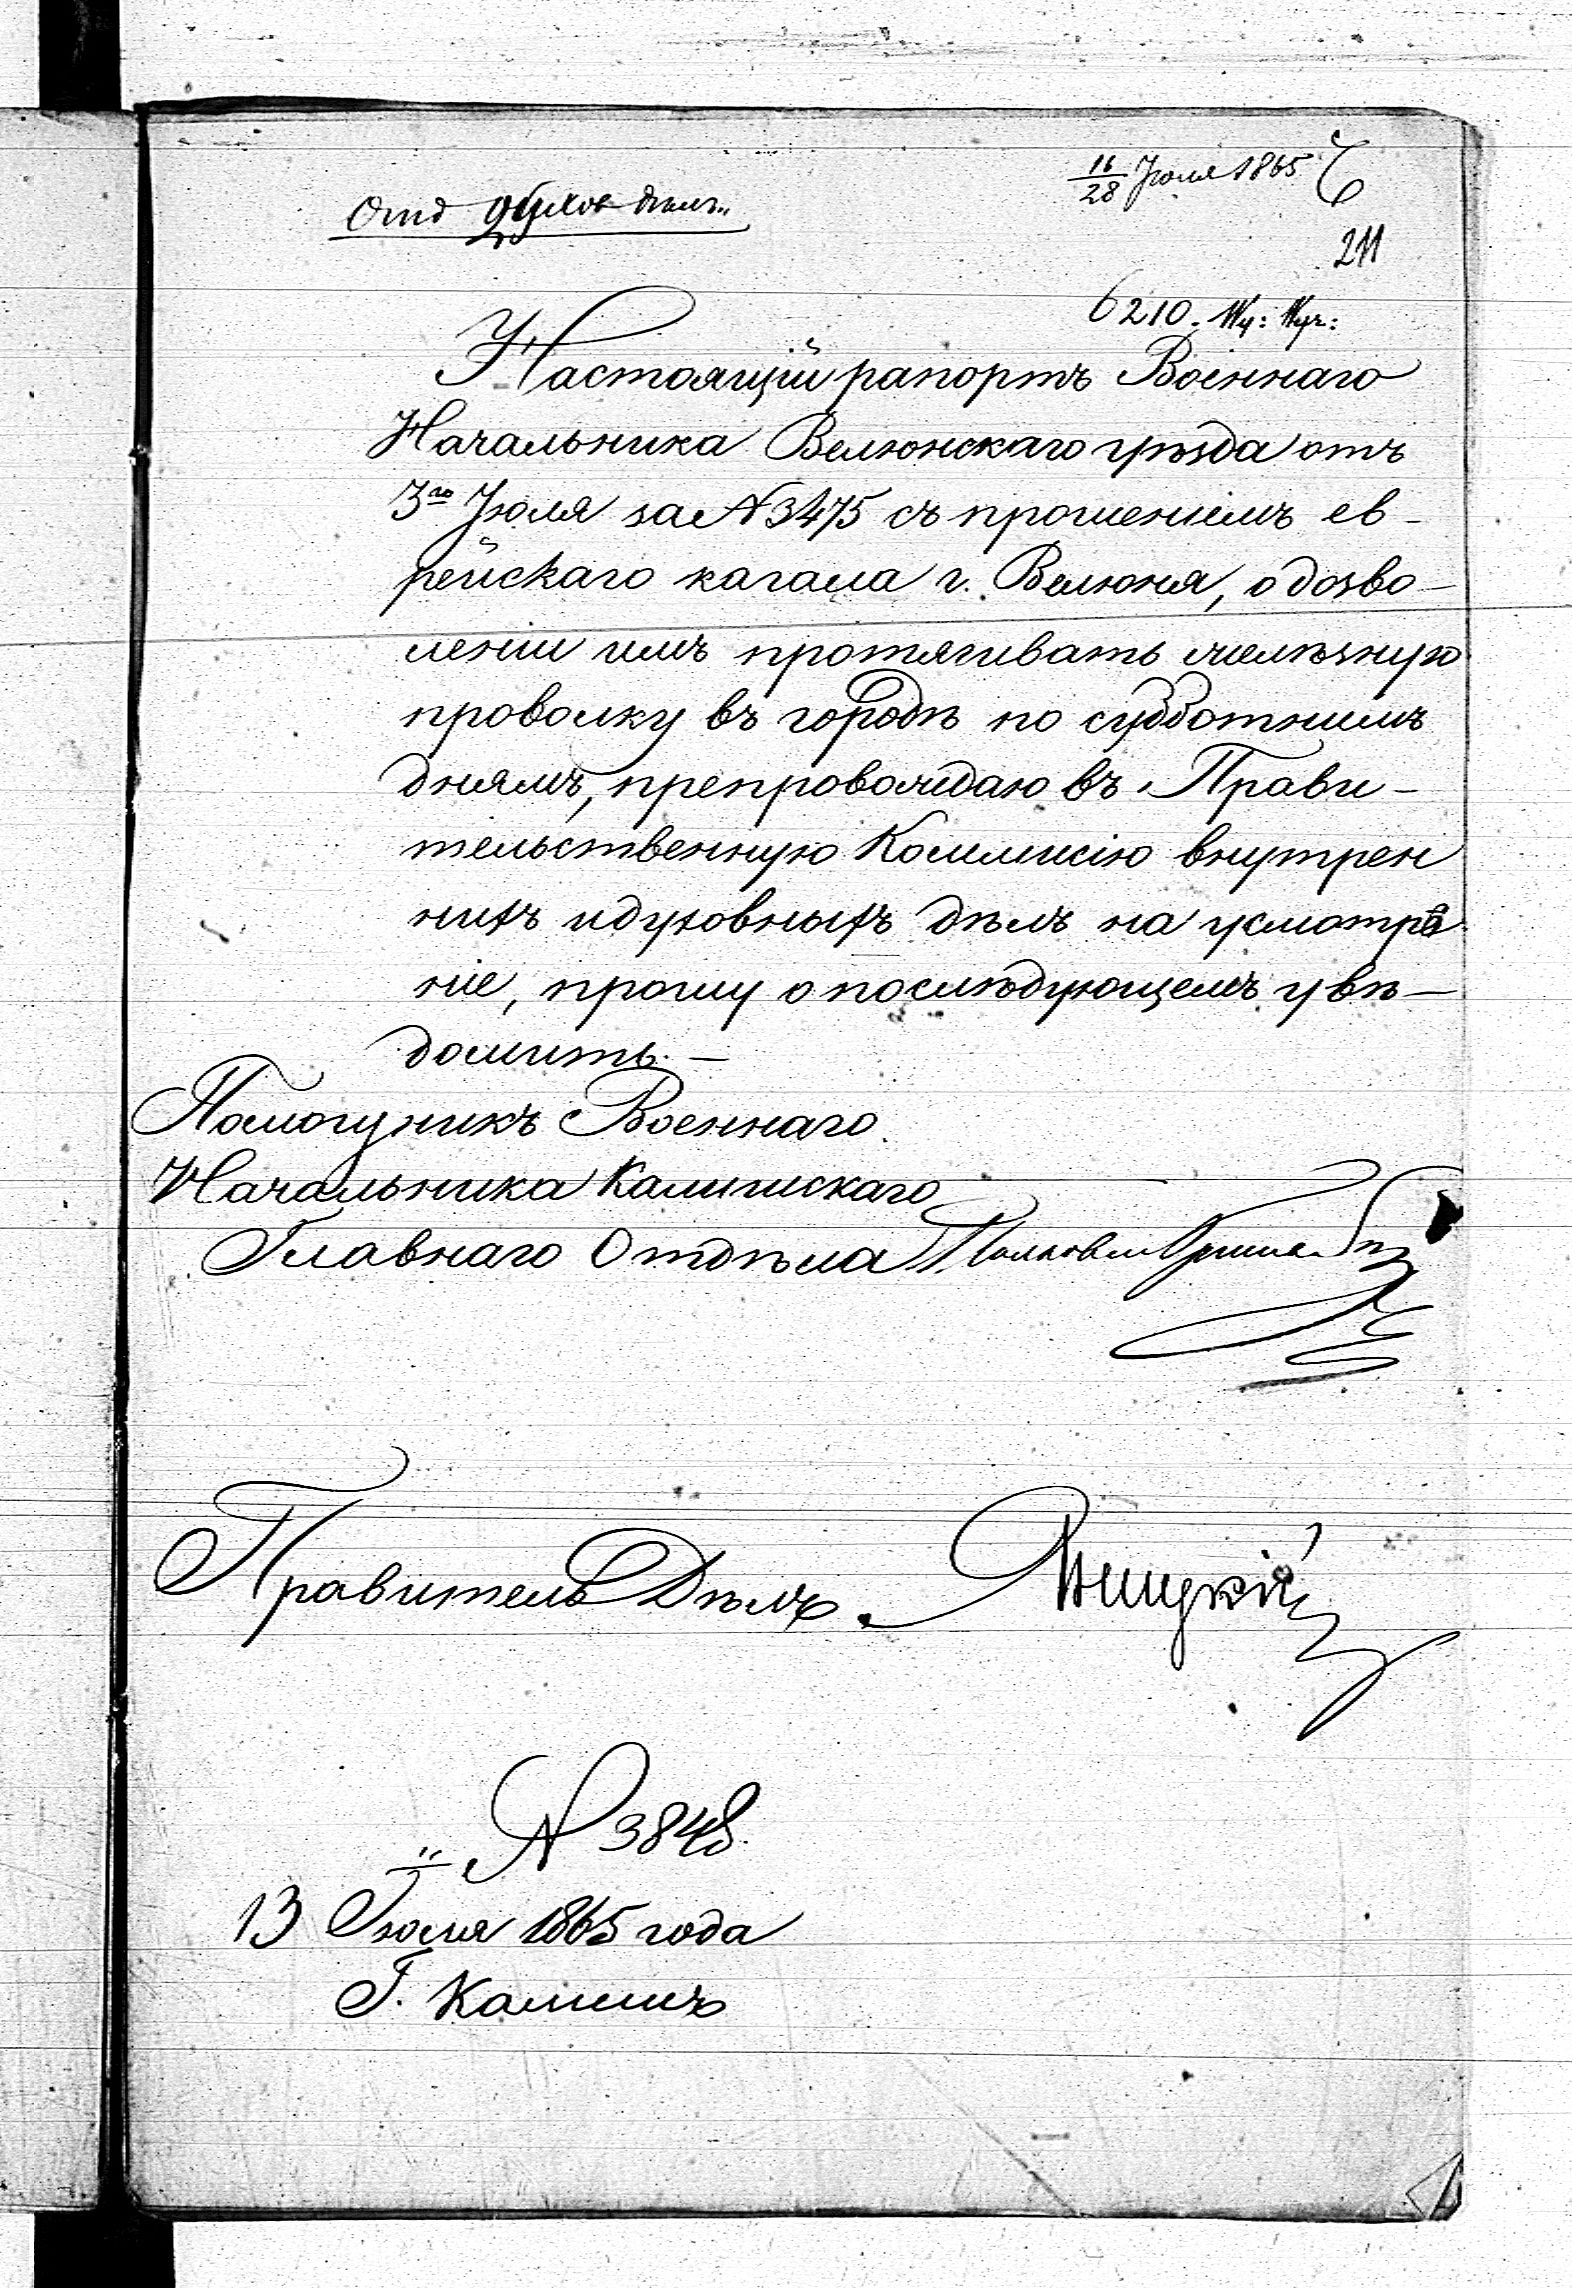 16/28 Іюля 1865
Отд духов дѣлъ
211
6210.
Настоящій рапортъ Военнаго
Начальника Велюнскаго уѣзда отъ
3го Іюля за № 3475 съ прошеніемъ ев-
рейскаго кагала г. Велюня, о дозво-
леніи имъ протягивать желѣзную
проволку въ городѣ по субботнимъ
днямъ, препровождаю въ Прави-
тельственную Коммисію внутрен
нихъ и духовныхъ дѣлъ на усмотрѣ
ніе, прошу о послѣдующемъ увѣ-
домить. -
Помощникъ Военнаго
Начальника Калишскаго
Главнаго Отдѣла Полковн
Правитель Дѣлъ.
№ 3848.
13 Іюля 1865 года
Г. Калишъ